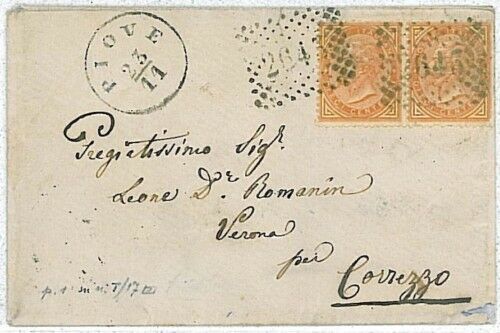 PIOVE
23/11
264
Pregiatissimo Sigʳ
Leone Dʳ Romanin
Verona
per
Correzzo